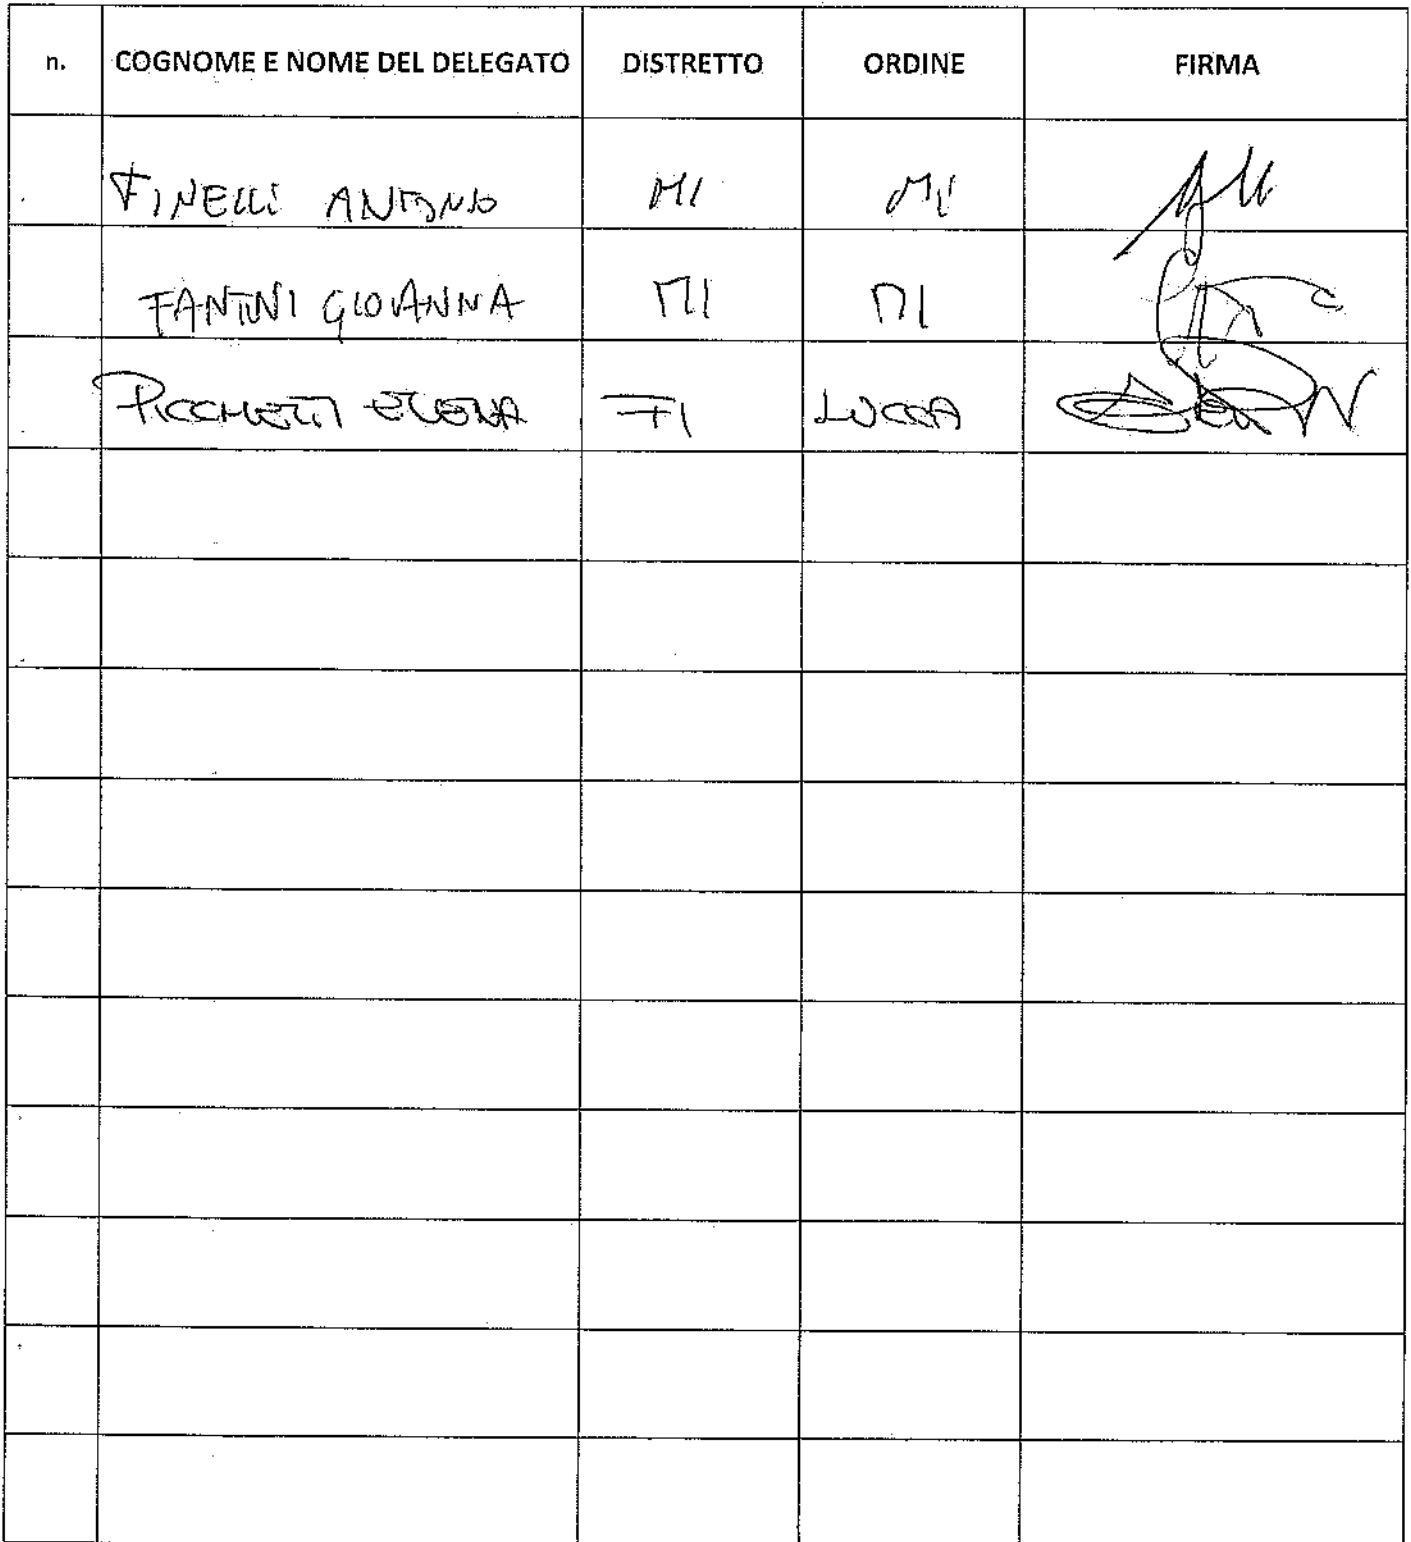 n. COGNOME E NOME DEL DELEGATO DISTRETTO ORDINE FIRMA
FINELLI ANTONIO MI MI
FANTINI GIOVANNA MI MI
PICCHETTI ELENA FI LUCCA